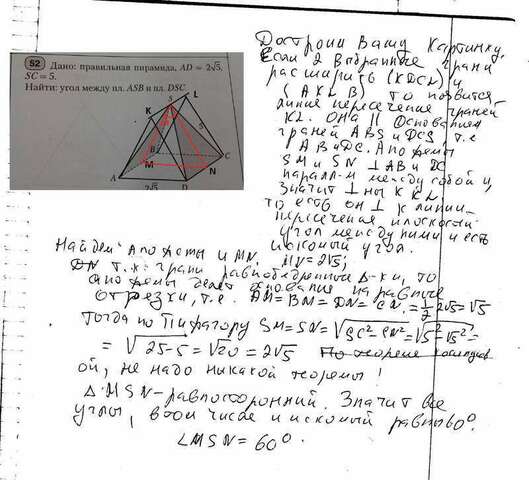 52 Дано: правильная пирамида, AD = 2√5,
SC = 5.
Найти: угол между пл. ASB и пл. DSC.
K
L
S
5
B
C
M
N
A
2√5
D
Достроим Вашу картинку.
Если 2 выбранные грани
расширить (KDCL) и
(AKLB) то появится
линия пересечение граней
KL. Она || Основаниям
граней ABS и DCS т.е
AB и DC. Апофемы
SM и SN ⊥ AB и DC
паралл-м между собой и,
значит ⊥ны к KL
то есть он ⊥ к линии
пересечения плоскостей
угол между ними и есть
искомый угол.
Найдем Апофеты и MN. MN = 2√5;
т.к. грани равнобедренные Δ-ки, то
апофемы делят основания на равные
отрезки, т.е. AM = BM = DN = CN = 1/2 2√5 = √5
Тогда по Пифагору SM = SN = √SC² - CN² = √5² - √5² =
= √25-5 = √20 = 2√5 По теореме косинусов
ой, не надо никакой теоремы!
Δ MSN - равносторонний. Значит все
углы, в том числе и искомый равны 60°.
∠MSN = 60°.